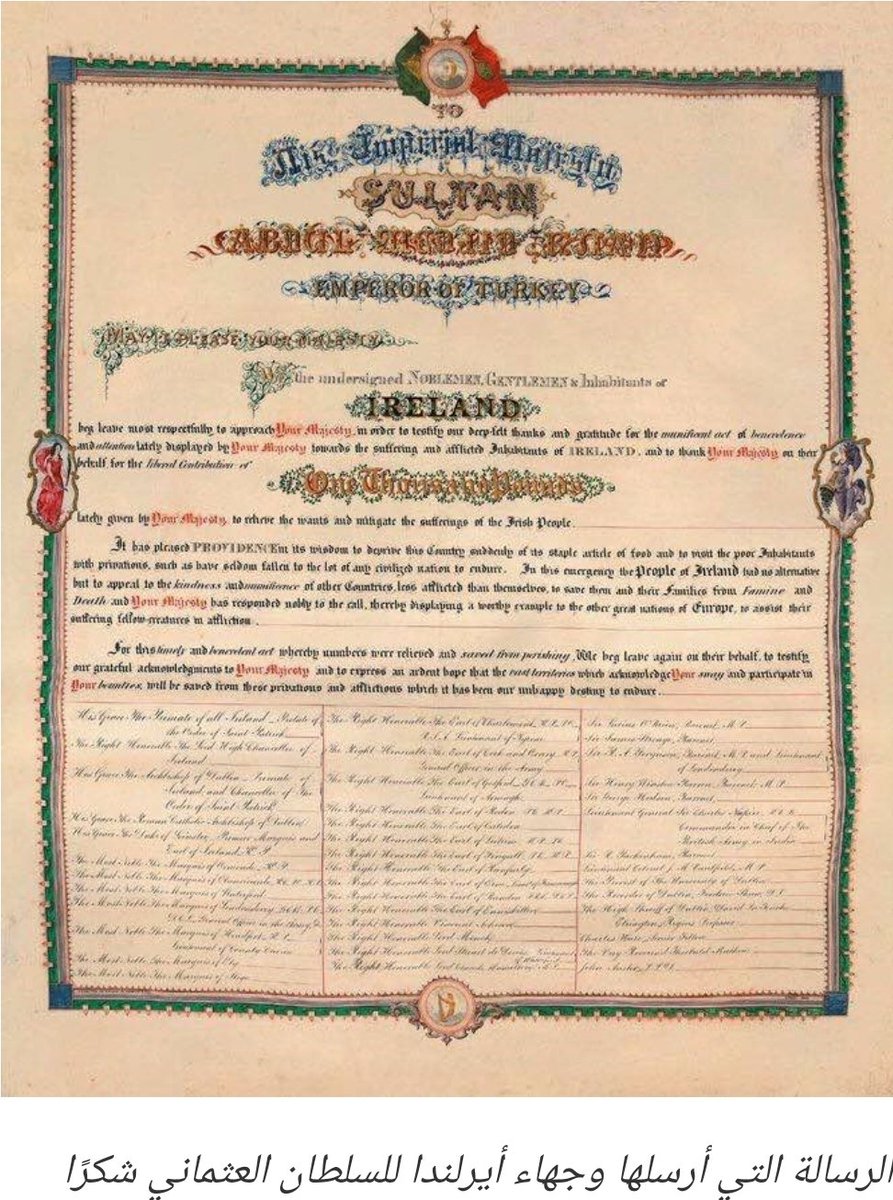 TO
His Imperial Majesty
SULTAN
ABDUL MEDJID KHAN
EMPEROR OF TURKEY
MAY IT PLEASE YOUR MAJESTY
We the undersigned NOBLEMEN, GENTLEMEN & Inhabitants of
IRELAND,
beg leave most respectfully to approach Your Majesty, in order to testify our deep-felt thanks and gratitude for the munificent act of benevolence
and attention lately displayed by Your Majesty towards the suffering and afflicted Inhabitants of IRELAND, and to thank Your Majesty on their
behalf for the liberal Contribution of
One Thousand Pounds
lately given by Your Majesty, to relieve the wants and mitigate the sufferings of the Irish People.
It has pleased PROVIDENCE in its wisdom to deprive this Country suddenly of its staple article of food and to visit the poor Inhabitants
with privations, such as have seldom fallen to the lot of any civilized nation to endure. In this emergency the People of Ireland had no alternative
but to appeal to the kindness and munificence of other Countries, less afflicted than themselves, to save them and their Families from Famine and
Death and Your Majesty has responded nobly to the call, thereby displaying a worthy example to the other great nations of Europe, to assist their
suffering fellow-creatures in affliction.
For this timely and benevolent act whereby numbers were relieved and saved from perishing, We beg leave again on their behalf, to testify
our grateful acknowledgments to Your Majesty and to express an ardent hope that the vast territories which acknowledge Your sway and participate in
Your bounties, will be saved from those privations and afflictions which it has been our unhappy destiny to endure.
His Grace The Primate of all Ireland – Prelate of
the Order of Saint Patrick
The Right Honorable The Lord High Chancellor of
Ireland
His Grace The Archbishop of Dublin – Primate of
Ireland and Chancellor of The
Order of Saint Patrick
His Grace The Roman Catholic Archbishop of Dublin
His Grace The Duke of Leinster, Premier Marquis and
Earl of Ireland, K. P.
The Most Noble The Marquis of Ormonde, K. P.
The Most Noble The Marquis of
The Most Noble The Marquis of Waterford
The Most Noble The Marquis of Londonderry
General Officer in the Army
The Most Noble The Marquis of Headfort, K. P.
Lieutenant of County Cavan
The Most Noble The Marquis of Ely
The Most Noble The Marquis of Sligo
The Right Honorable The Earl of Charlemont, K. P.
Lieutenant of Tyrone
The Right Honorable The Earl of Cork and Orrery, K. P.
General Officer in the Army
The Right Honorable The Earl of Gosford
Lieutenant of Armagh
The Right Honorable The Earl of Roden
The Right Honorable The Earl of Caledon
The Right Honorable The Earl of Leitrim
The Right Honorable The Earl of Fingall
The Right Honorable The Earl of Ranfurly
The Right Honorable The Earl of Erne
The Right Honorable The Earl of Bandon
The Right Honorable The Earl of Enniskillen
The Right Honorable Viscount
The Right Honorable Lord
The Right Honorable Lord Stuart de Decies
The Right Honorable Lord Claude Hamilton
Sir Lucius O'Brien, Baronet, M. P.
Sir James Stronge, Baronet
Sir R. A. Ferguson, Baronet, M. P. and Lieutenant
of Londonderry
Sir Henry Winston Barron, Baronet, M. P.
Sir George Hodson, Baronet
Lieutenant General Sir Charles Napier
Commander in Chief of The
British Army in India
Sir R. Pakenham, Baronet
Lieutenant Colonel J. M. Caulfield, M. P.
The Provost of The University of Dublin
The Recorder of Dublin, Frederic Shaw
The High Sheriff of Dublin, David La Touche
Professor
Charles
The Very Reverend Theobald Mathew
John
الرسالة التي أرسلها وجهاء أيرلندا للسلطان العثماني شكرًا